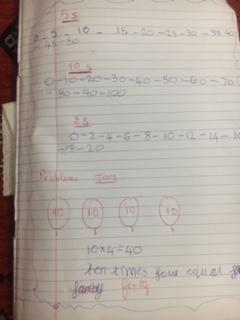 5s
0-5-10-15-20-25-30-35 40
-45-50
10s
0-10-20-30-40-50-60-70
-80-90-100
2s
0-2-4-6-8-10-12-14-16
-18-20
Problem
10 10 10 10
10x4=40
ten times four equal
forty